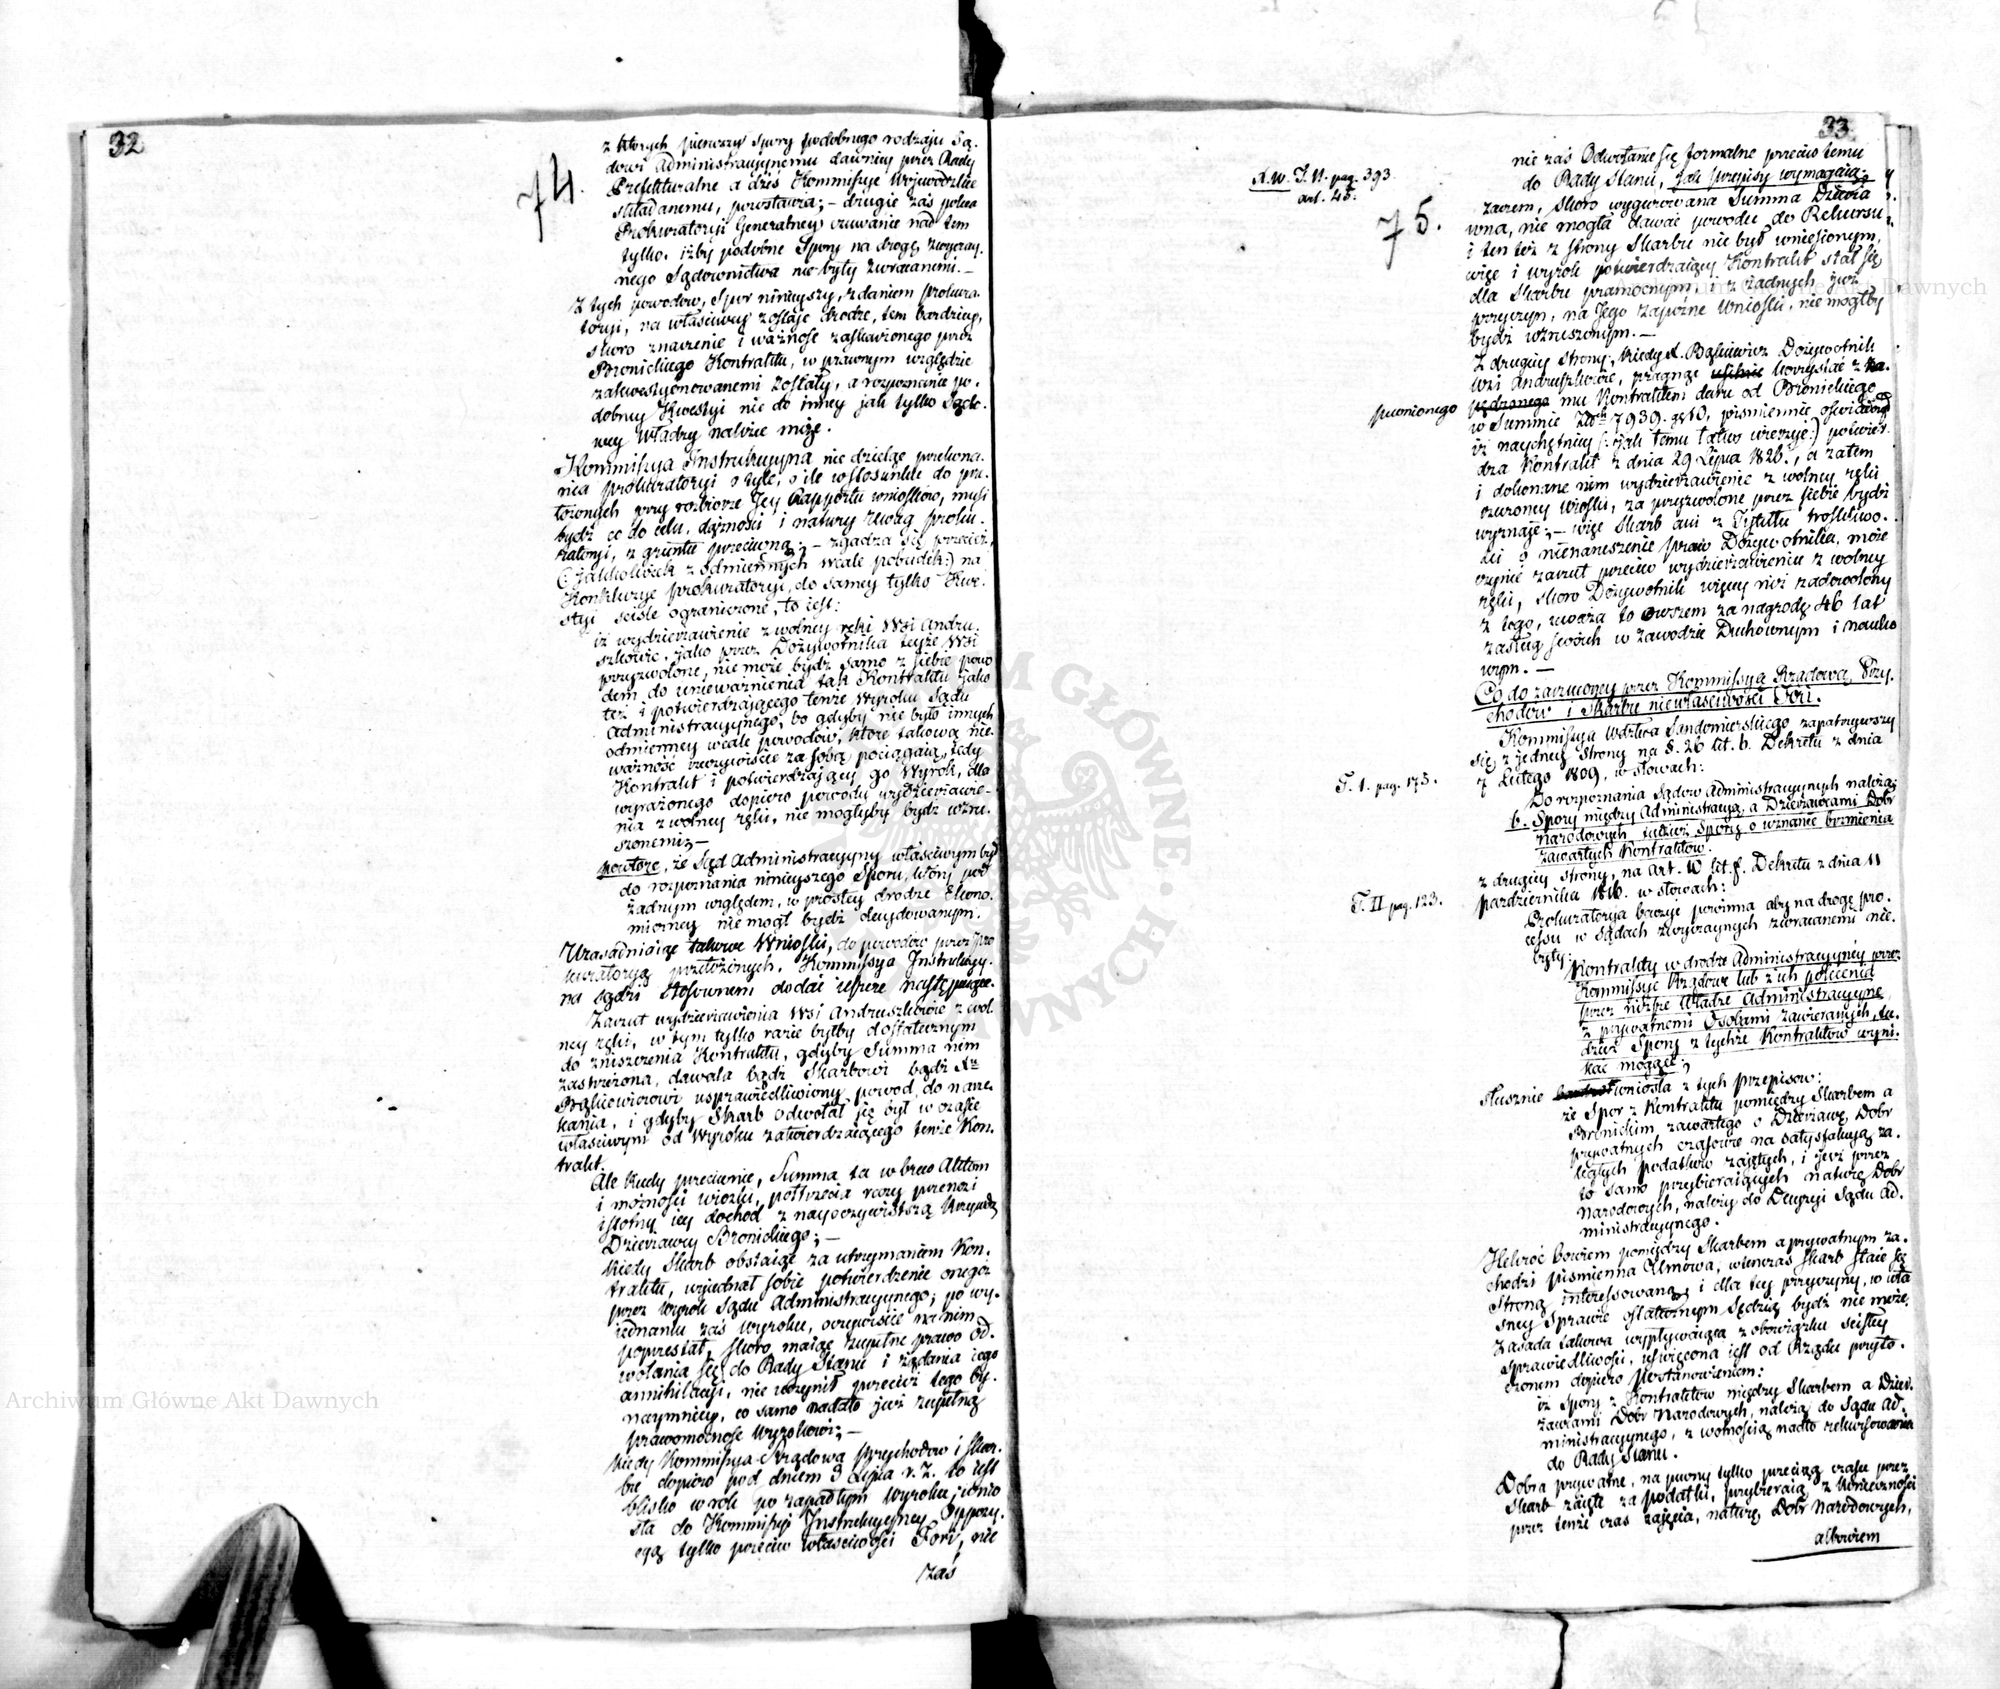 32
74.
z których pierwszy spory podobnego rodzaju Są-
dowi Administracyjnemu dawniey przez Rady
Prefekturalne a dziś Kommissye Wojewodzkie
składanemu, powstawia; – drugie zaś poleca
Prokuratoryi Generalney czuwanie nad tem
tylko, iżby podobne Spory na drogę zwyczay-
nego Sądownictwa nie były zwracanemi. –
Z tych powodow, Spor ninieyszy, zdaniem Prokura-
toryi, na właściwey zostaje drodze, tem bardziey,
skoro znaczenie i ważność zaskarżonego przez
Bronickiego Kontraktu, w prawnym względzie
zakwestyonowanemi zostały, a rozpoznanie po-
dobney Kwestyi nie do inney jak tylko Sądo-
wey Władzy należeć może.
Kommissya Instrukcyjna nie dzieląc przekona-
nia prokuratoryi o tyle, o ile w stosunku do przy-
toczonych przy rozbiorze Jey Rapportu wniosków, musi
bydź co do celu, dążności i natury uwag proku-
ratoryi, z gruntu przeciwną; – zgadza się przecież,
(: jakkolwiek z odmiennych wcale pobudek:) na
Konkluzye prokuratoryi, do samey tylko Kwe-
styi ściśle ograniczone, to jest:
iż wydzierżawienie z wolney ręki Wsi Andru-
szkowic, jako przez Dożywotnika teyże Wsi
przyzwolone, nie może bydź samo z siebie powo
dem do unieważnienia tak Kontraktu jako
też i potwierdzającego tenże Wyroku Sądu
Administracyjnego, bo gdyby nie było innych
odmienney wcale powodów, które takową nie-
ważność rzeczywiście za sobą pociągaią, tedy
Kontrakt i potwierdzający go Wyrok, dla
wyrażonego dopiero powodu wydzierżawie-
nia z wolney ręki, nie mogłyby bydź wzru-
szonemi; –
powtóre, że Sąd Administracyjny właściwym był
do rozpoznania ninieyszego Sporu, który pod
żadnym względem, w prostey drodze Ekono-
miczney nie mogł bydź decydowanym.
Uzasadniaiąc takowe Wnioski, do powodów przez Pro
kuratoryą przełożonych, Kommissya Instrukcyj-
na sądzi stosownem dodać jeszcze następujące.
Zarzut wydzierżawienia Wsi Andruszkowic z wol-
ney ręki, w tym tylko razie byłby dostatecznym
do zniszczenia Kontraktu, gdyby Summa nim
zastrzeżona, dawała bądź Skarbowi bądź X.
Bąkiewiczowi usprawiedliwiony powod do narze-
kania, i gdyby Skarb odwołał się był w czasie
właściwym od Wyroku zatwierdzaiącego tenże Kon-
trakt.
Ale kiedy przeciwnie, Summa ta wbrew Aktom
i możności wioski, półtrzecia razy przenosi
istotny jey dochód z nayoczywistszą Krzywdą
Dzierżawcy Bronickiego; –
Kiedy Skarb obstaiąc za utrzymaniem Kon-
traktu, wyiednał sobie potwierdzenie onegoż
przez Wyrok Sądu Administracyjnego; po wy-
iednaniu zaś Wyroku, oczywiście na nim
poprzestał, skoro maiąc zupełne prawo od-
wołania się do Rady Stanu i żądania iego
annihilacyi, nie uczynił przecież tego by-
naymniey, co samo nadało już zupełną
prawomocność Wyrokowi; –
Kiedy Kommissya Rządowa Przychodow i Skar-
bu dopiero pod dniem 9 Lipca r. z. to jest
blisko w rok po zapadłym Wyroku, wnio
sła do Kommissyi Instrukcyjney Oppozy-
cyą tylko przeciw właściwości Fori, nie
zaś
33
K.W. T.II. pag. 393.
art. 45.
75.
nie zaś Odwołanie się formalne przeciw temu
do Rady Stanu, jak przepisy wymagaią;
zatem, skoro wygurowana Summa Dzierża
wna, nie mogła dawać powodu do Rekursu
i ten też z strony Skarbu nie był wniesionym,
więc i wyrok potwierdzaiący Kontrakt stał się
dla Skarbu prawomocnym i z żadnych już
przyczyn, na Jego zapóźne Wnioski, nie mogłby
bydź wzruszonym. –
Z drugiey strony, kiedy X. Bąkiewicz Dożywotnik
Wsi Andruszkowic, pragnąc usilnie korzystać z na-
rzędzonego mu Kontraktem daru od Bronickiego
pewnionego
w Summie Złch 7939. gr 10, piśmiennie oświadczył
iż naychętniey (: jak temu łatwo wierzyć:) potwier-
dza Kontrakt z dnia 29 Lipca 1826, a zatem
i dokonane nim wydzierżawienie z wolney ręki
rzeczoney wioski, za przyzwolone przez siebie bydź
wyznaje; – więc Skarb ani z Tytułu troskliwo-
ści o nienaruszenie praw Dożywotnika, może
czynić zarzut przeciw wydzierżawieniu z wolney
ręki, skoro Dożywotnik więcey niż zadowolony
z tego, uważa to owszem za nagrodę 46 lat
zasług swoich w zawodzie Duchownym i nauko
wym. –
Co do zarzucaney przez Kommissyą Rządową Przy-
chodow i Skarbu niewłaściwości Fori.
Kommissya Wdztwa Sandomierskiego zapatrzywszy
się z jedney strony na §. 26 lit. b. Dekretu z dnia
7 Lutego 1809, w słowach:
T. I. pag. 173.
Do rozpoznania Sądów Administracyjnych należą:
b. Spory między Administracyą, a Dzierżawcami Dobr
Narodowych, tudzież Spory o uznanie brzmienia
zawartych Kontraktow.
z drugiey strony, na art. 10 lit. f. Dekretu z dnia 11
Października 1816. w słowach:
T. II pag. 123.
Prokuratorya baczyć powinna aby na drogę pro-
cessu w Sądach zwyczaynych zwracanemi nie
były:
Kontrakty w drodze Administracyjney przez
Kommissye Rządowe lub z ich polecenia
przez niższe Władze Administracyjne,
z prywatnemi Osobami zawieranych, tu-
dzież Spory z tychże Kontraktow wyni-
kać mogące;
Słusznie wniosła z tych przepisow:
że Spor z Kontraktu pomiędzy Skarbem a
Bronickim zawartego o Dzierżawę Dobr
prywatnych czasowie na satysfakcyą za-
ległych podatkow zajętych, i już przez
to samo przybieraiących naturę Dobr
Narodowych, należy do Decyzyi Sądu Ad-
ministracyjnego.
Ilekroć bowiem pomiędzy Skarbem a prywatnym za-
chodzi piśmienna Umowa, wienczas Skarb staie się
Stroną interessowaną i dla tey przyczyny, w wła
sney Sprawie ostatecznym Sędzią bydź nie może.
Zasada takowa wypływaiąca z obowiązku ścisłey
Sprawiedliwości, uświęcona jest od Rządu przyto-
czonem dopiero Postanowieniem:
iż Spory z Kontraktow między Skarbem a Dzier-
żawcami Dobr Narodowych, należą do Sądu Ad-
ministracyjnego, z wolnością nadto rekursowania
do Rady Stanu.
Dobra prywatne, na pewny tylko przeciąg czasu przez
Skarb zajęte za podatki, przybieraią z Konieczności
przez tenże czas zajęcia, naturę Dobr Narodowych,
albowiem
Archiwum Główne Akt Dawnych